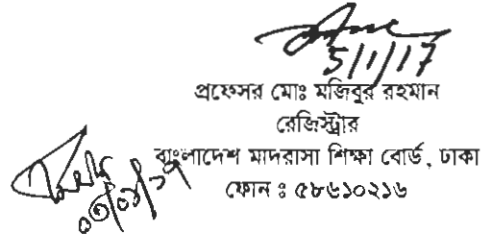 5/1/17
প্রফেসর মোঃ মজিবুর রহমান
রেজিস্ট্রার
বাংলাদেশ মাদরাসা শিক্ষা বোর্ড, ঢাকা
ফোন ঃ ৫৮৬১০২১৬